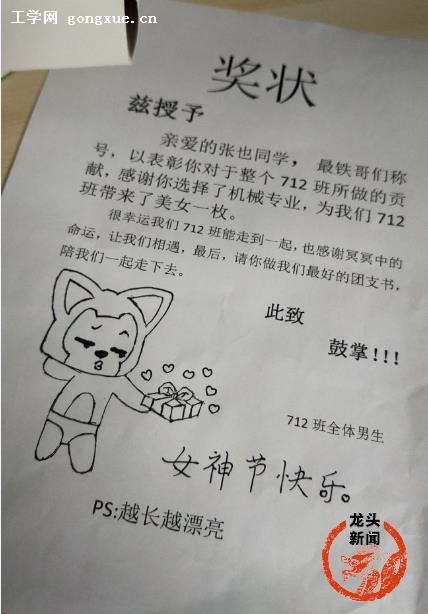 工学网 gongxue.cn
奖状
兹授予
亲爱的张也同学，最铁哥们称
号，以表彰你对于整个712班所做的贡
献，感谢你选择了机械专业，为我们712
班带来了美女一枚。
很幸运我们712班能走到一起，也感谢冥冥中的
命运，让我们相遇，最后，请你做我们最好的团支书，
陪我们一起走下去。
此致
鼓掌!!!
712班全体男生
女神节快乐。
PS:越长越漂亮
龙头
新闻